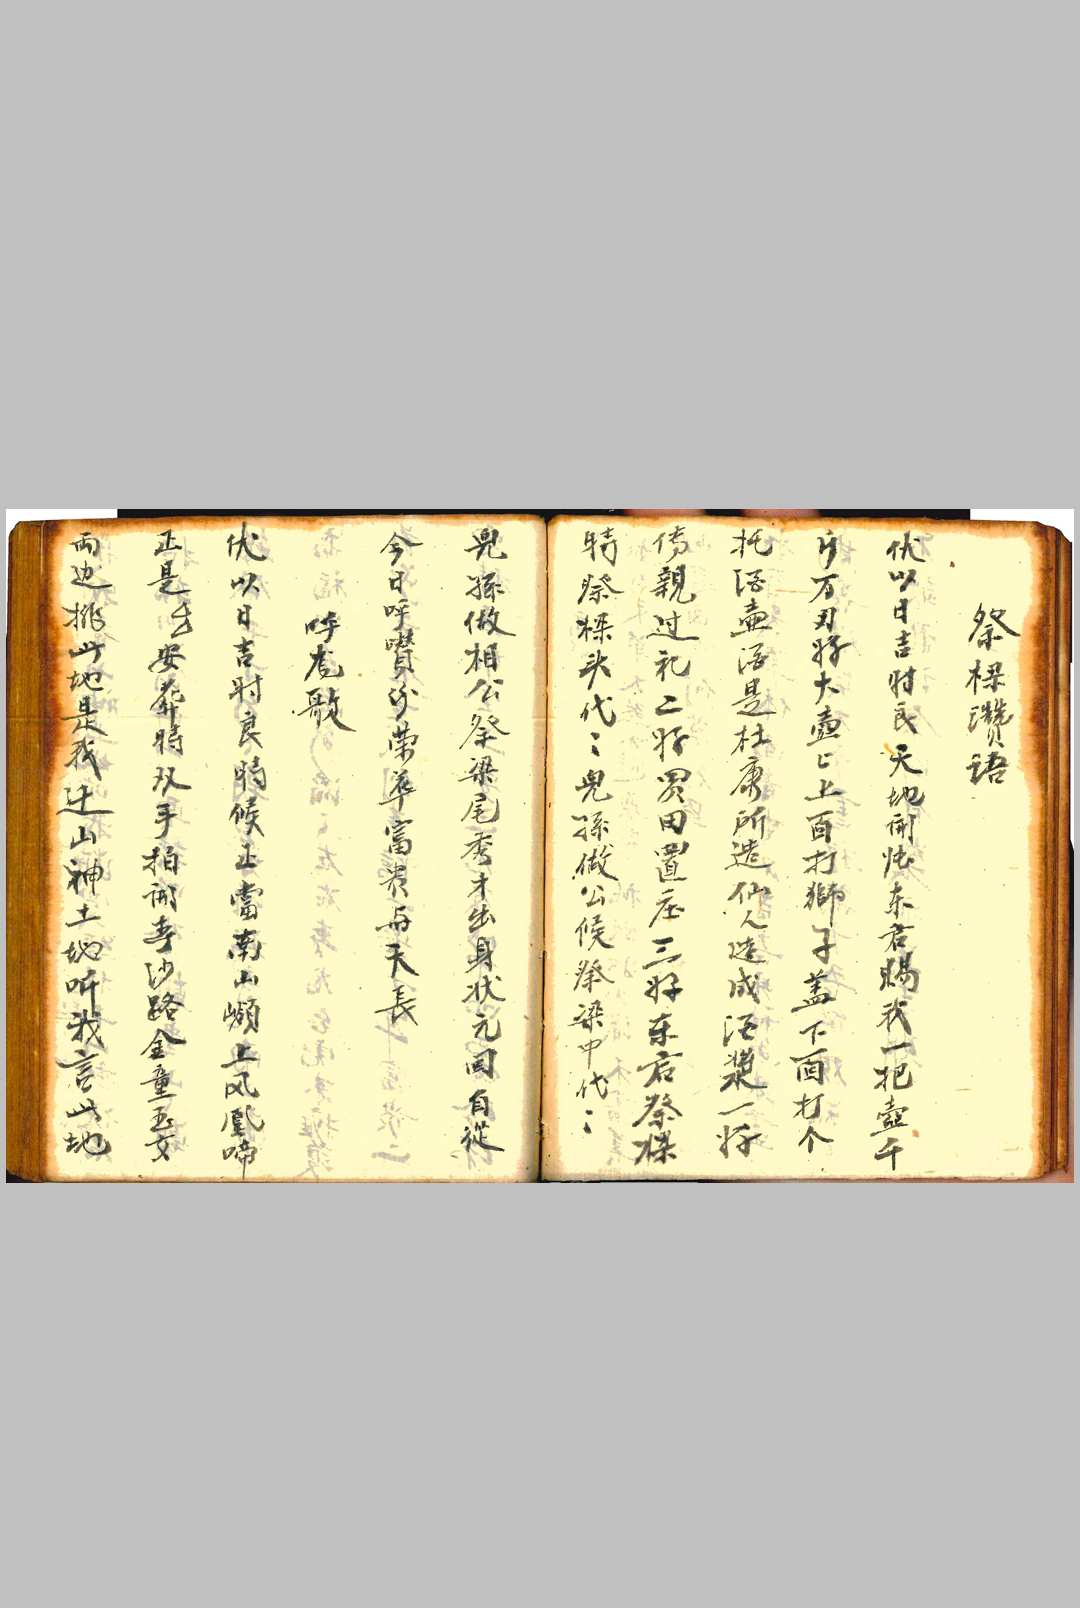 祭樑讚语
伏以日吉时良天地開张东君赐我一把壶千
方万刃好大壶上上面打獅子盖下面打个
托酒壶酒是杜康所造仙人造成酒漿一好
传親过礼二好買田置庄三好东君祭樑
特祭樑头代〻兒孫做公候祭梁中代〻
兒孫做相公祭梁尾秀才出身状元回自從
今日呼讚後荣华富贵与天長
呼龙歌
伏以日吉时良時候正當南山嶺上凤凰啼
正是安葬時双手拍開青沙路金童玉女
両边排此地是我迁山神土地听我言此地